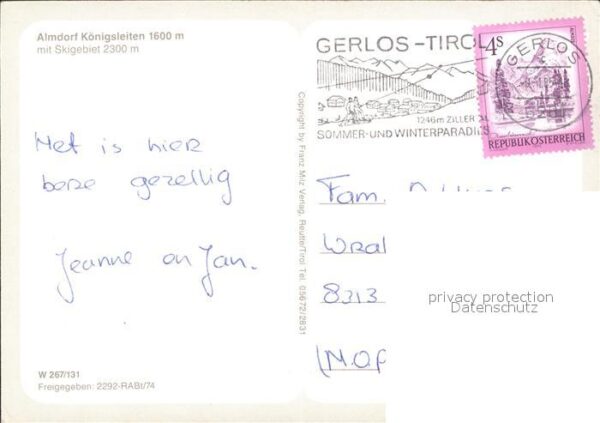 Almdorf Königsleiten 1600 m
mit Skigebiet 2300 m
Met is hier
bere gezellig
Jeanne en Jan.
W 267/131
Freigegeben: 2292-RABt/74
Copyright by Franz Milz Verlag, Reutte/Tirol Tel. 05672/2831
GERLOS-TIROL
1246m ZILLER
SOMMER-UND WINTERPARADIES
4S
GERLOS
REPUBLIK ÖSTERREICH
Fam.
Wral
8313
privacy protection
Datenschutz